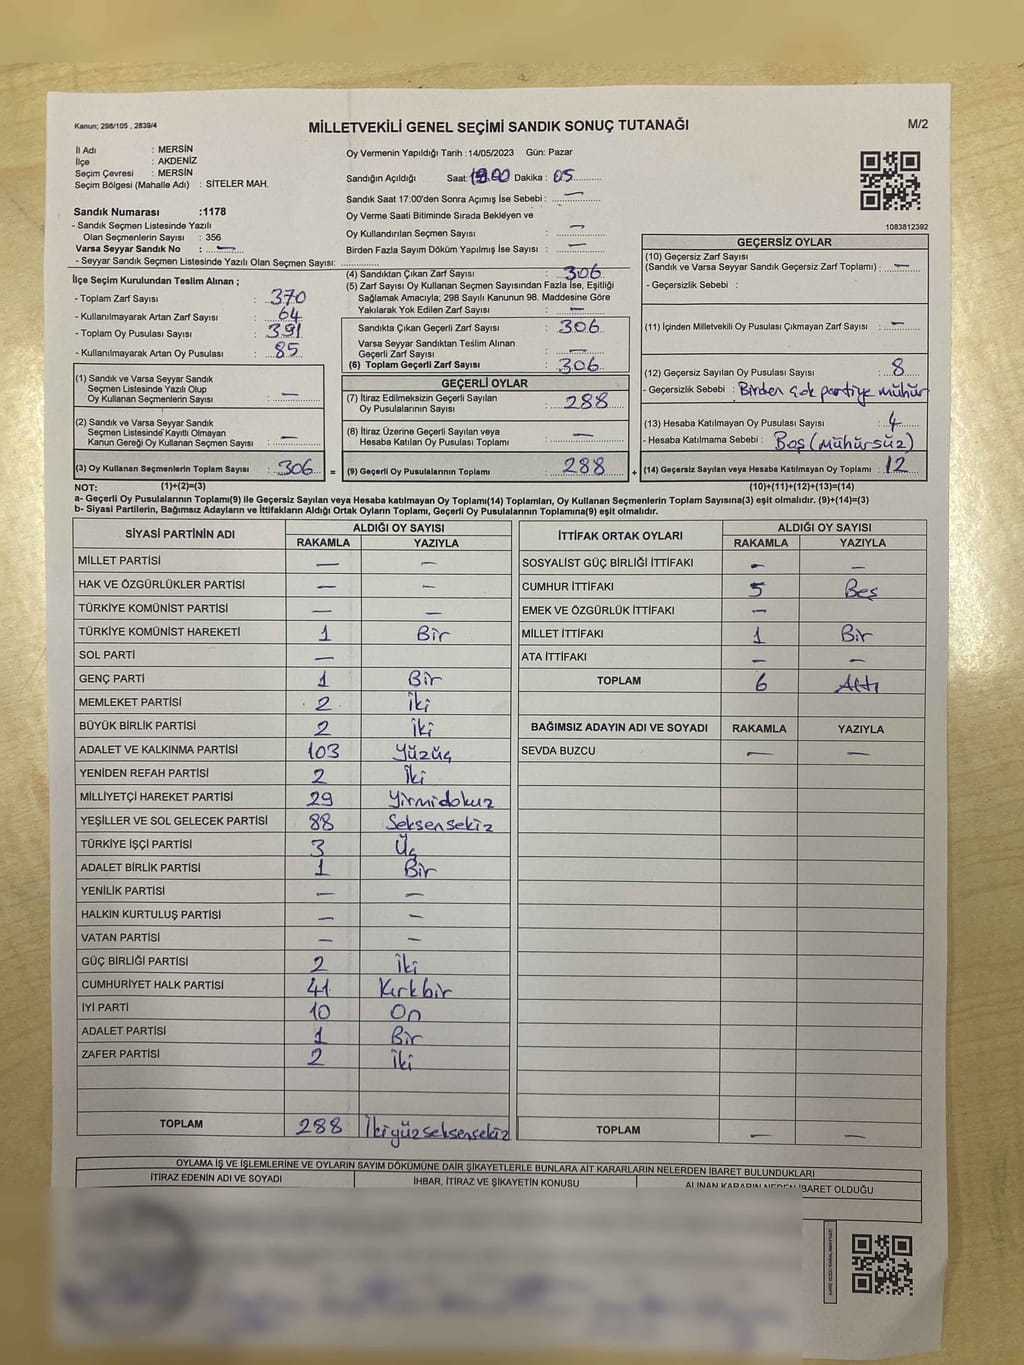 Kanun; 298/105 , 2839/4
MİLLETVEKİLİ GENEL SEÇİMİ SANDIK SONUÇ TUTANAĞI
M/2
İl Adı : MERSİN
İlçe : AKDENİZ
Seçim Çevresi : MERSİN
Seçim Bölgesi (Mahalle Adı) : SİTELER MAH.
Sandık Numarası :1178
- Sandık Seçmen Listesinde Yazılı
Olan Seçmenlerin Sayısı : 356
Varsa Seyyar Sandık No : —
- Seyyar Sandık Seçmen Listesinde Yazılı Olan Seçmen Sayısı:
İlçe Seçim Kurulundan Teslim Alınan ;
- Toplam Zarf Sayısı : 370
- Kullanılmayarak Artan Zarf Sayısı : 64
- Toplam Oy Pusulası Sayısı : 391
- Kullanılmayarak Artan Oy Pusulası : 85
(1) Sandık ve Varsa Seyyar Sandık
Seçmen Listesinde Yazılı Olup
Oy Kullanan Seçmenlerin Sayısı : —
(2) Sandık ve Varsa Seyyar Sandık
Seçmen Listesinde Kayıtlı Olmayan
Kanun Gereği Oy Kullanan Seçmen Sayısı : —
(3) Oy Kullanan Seçmenlerin Toplam Sayısı : 306 =
Oy Vermenin Yapıldığı Tarih :14/05/2023 Gün: Pazar
Sandığın Açıldığı Saat: Dakika : 05
Sandık Saat 17:00'den Sonra Açımış İse Sebebi : —
Oy Verme Saati Bitiminde Sırada Bekleyen ve
Oy Kullandırılan Seçmen Sayısı : —
Birden Fazla Sayım Döküm Yapılmış İse Sayısı : —
(4) Sandıktan Çıkan Zarf Sayısı : 306
(5) Zarf Sayısı Oy Kullanan Seçmen Sayısından Fazla İse, Eşitliği
Sağlamak Amacıyla; 298 Sayılı Kanunun 98. Maddesine Göre
Yakılarak Yok Edilen Zarf Sayısı : —
Sandıkta Çıkan Geçerli Zarf Sayısı : 306
Varsa Seyyar Sandıktan Teslim Alınan
Geçerli Zarf Sayısı : —
(6) Toplam Geçerli Zarf Sayısı : 306
GEÇERLİ OYLAR
(7) İtiraz Edilmeksizin Geçerli Sayılan
Oy Pusulalarının Sayısı : 288
(8) İtiraz Üzerine Geçerli Sayılan veya
Hesaba Katılan Oy Pusulası Toplamı : —
(9) Geçerli Oy Pusulalarının Toplamı : 288 +
1083812392
GEÇERSİZ OYLAR
(10) Geçersiz Zarf Sayısı
(Sandık ve Varsa Seyyar Sandık Geçersiz Zarf Toplamı) : —
- Geçersizlik Sebebi :
(11) İçinden Milletvekili Oy Pusulası Çıkmayan Zarf Sayısı : —
(12) Geçersiz Sayılan Oy Pusulası Sayısı : 8
- Geçersizlik Sebebi : Birden çok partiye mühür
(13) Hesaba Katılmayan Oy Pusulası Sayısı : 4
- Hesaba Katılmama Sebebi : Boş (mühürsüz)
(14) Geçersiz Sayılan veya Hesaba Katılmayan Oy Toplamı : 12
NOT: (1)+(2)=(3) (10)+(11)+(12)+(13)=(14)
a- Geçerli Oy Pusulalarının Toplamı(9) ile Geçersiz Sayılan veya Hesaba katılmayan Oy Toplamı(14) Toplamları, Oy Kullanan Seçmenlerin Toplam Sayısına(3) eşit olmalıdır. (9)+(14)=(3)
b- Siyasi Partilerin, Bağımsız Adayların ve İttifakların Aldığı Ortak Oyların Toplamı, Geçerli Oy Pusulalarının Toplamına(9) eşit olmalıdır.
SİYASİ PARTİNİN ADI ALDIĞI OY SAYISI
RAKAMLA YAZIYLA
MİLLET PARTİSİ — —
HAK VE ÖZGÜRLÜKLER PARTİSİ — —
TÜRKİYE KOMÜNİST PARTİSİ — —
TÜRKİYE KOMÜNİST HAREKETİ 1 Bir
SOL PARTİ —
GENÇ PARTİ 1 Bir
MEMLEKET PARTİSİ 2 İki
BÜYÜK BİRLİK PARTİSİ 2 İki
ADALET VE KALKINMA PARTİSİ 103 Yüzüç
YENİDEN REFAH PARTİSİ 2 İki
MİLLİYETÇİ HAREKET PARTİSİ 29 Yirmidokuz
YEŞİLLER VE SOL GELECEK PARTİSİ 88 Seksensekiz
TÜRKİYE İŞÇİ PARTİSİ 3 Üç
ADALET BİRLİK PARTİSİ 1 Bir
YENİLİK PARTİSİ — —
HALKIN KURTULUŞ PARTİSİ — —
VATAN PARTİSİ — —
GÜÇ BİRLİĞİ PARTİSİ 2 İki
CUMHURİYET HALK PARTİSİ 41 Kırkbir
İYİ PARTİ 10 On
ADALET PARTİSİ 1 Bir
ZAFER PARTİSİ 2 İki
TOPLAM 288 İkiyüzseksensekiz
İTTİFAK ORTAK OYLARI ALDIĞI OY SAYISI
RAKAMLA YAZIYLA
SOSYALİST GÜÇ BİRLİĞİ İTTİFAKI — —
CUMHUR İTTİFAKI 5 Beş
EMEK VE ÖZGÜRLÜK İTTİFAKI —
MİLLET İTTİFAKI 1 Bir
ATA İTTİFAKI — —
TOPLAM 6 Altı
BAĞIMSIZ ADAYIN ADI VE SOYADI RAKAMLA YAZIYLA
SEVDA BUZCU — —
TOPLAM — —
OYLAMA İŞ VE İŞLEMLERİNE VE OYLARIN SAYIM DÖKÜMÜNE DAİR ŞİKAYETLERLE BUNLARA AİT KARARLARIN NELERDEN İBARET BULUNDUKLARI
İTİRAZ EDENİN ADI VE SOYADI İHBAR, İTİRAZ VE ŞİKAYETİN KONUSU ALINAN KARARIN NEDEN İBARET OLDUĞU